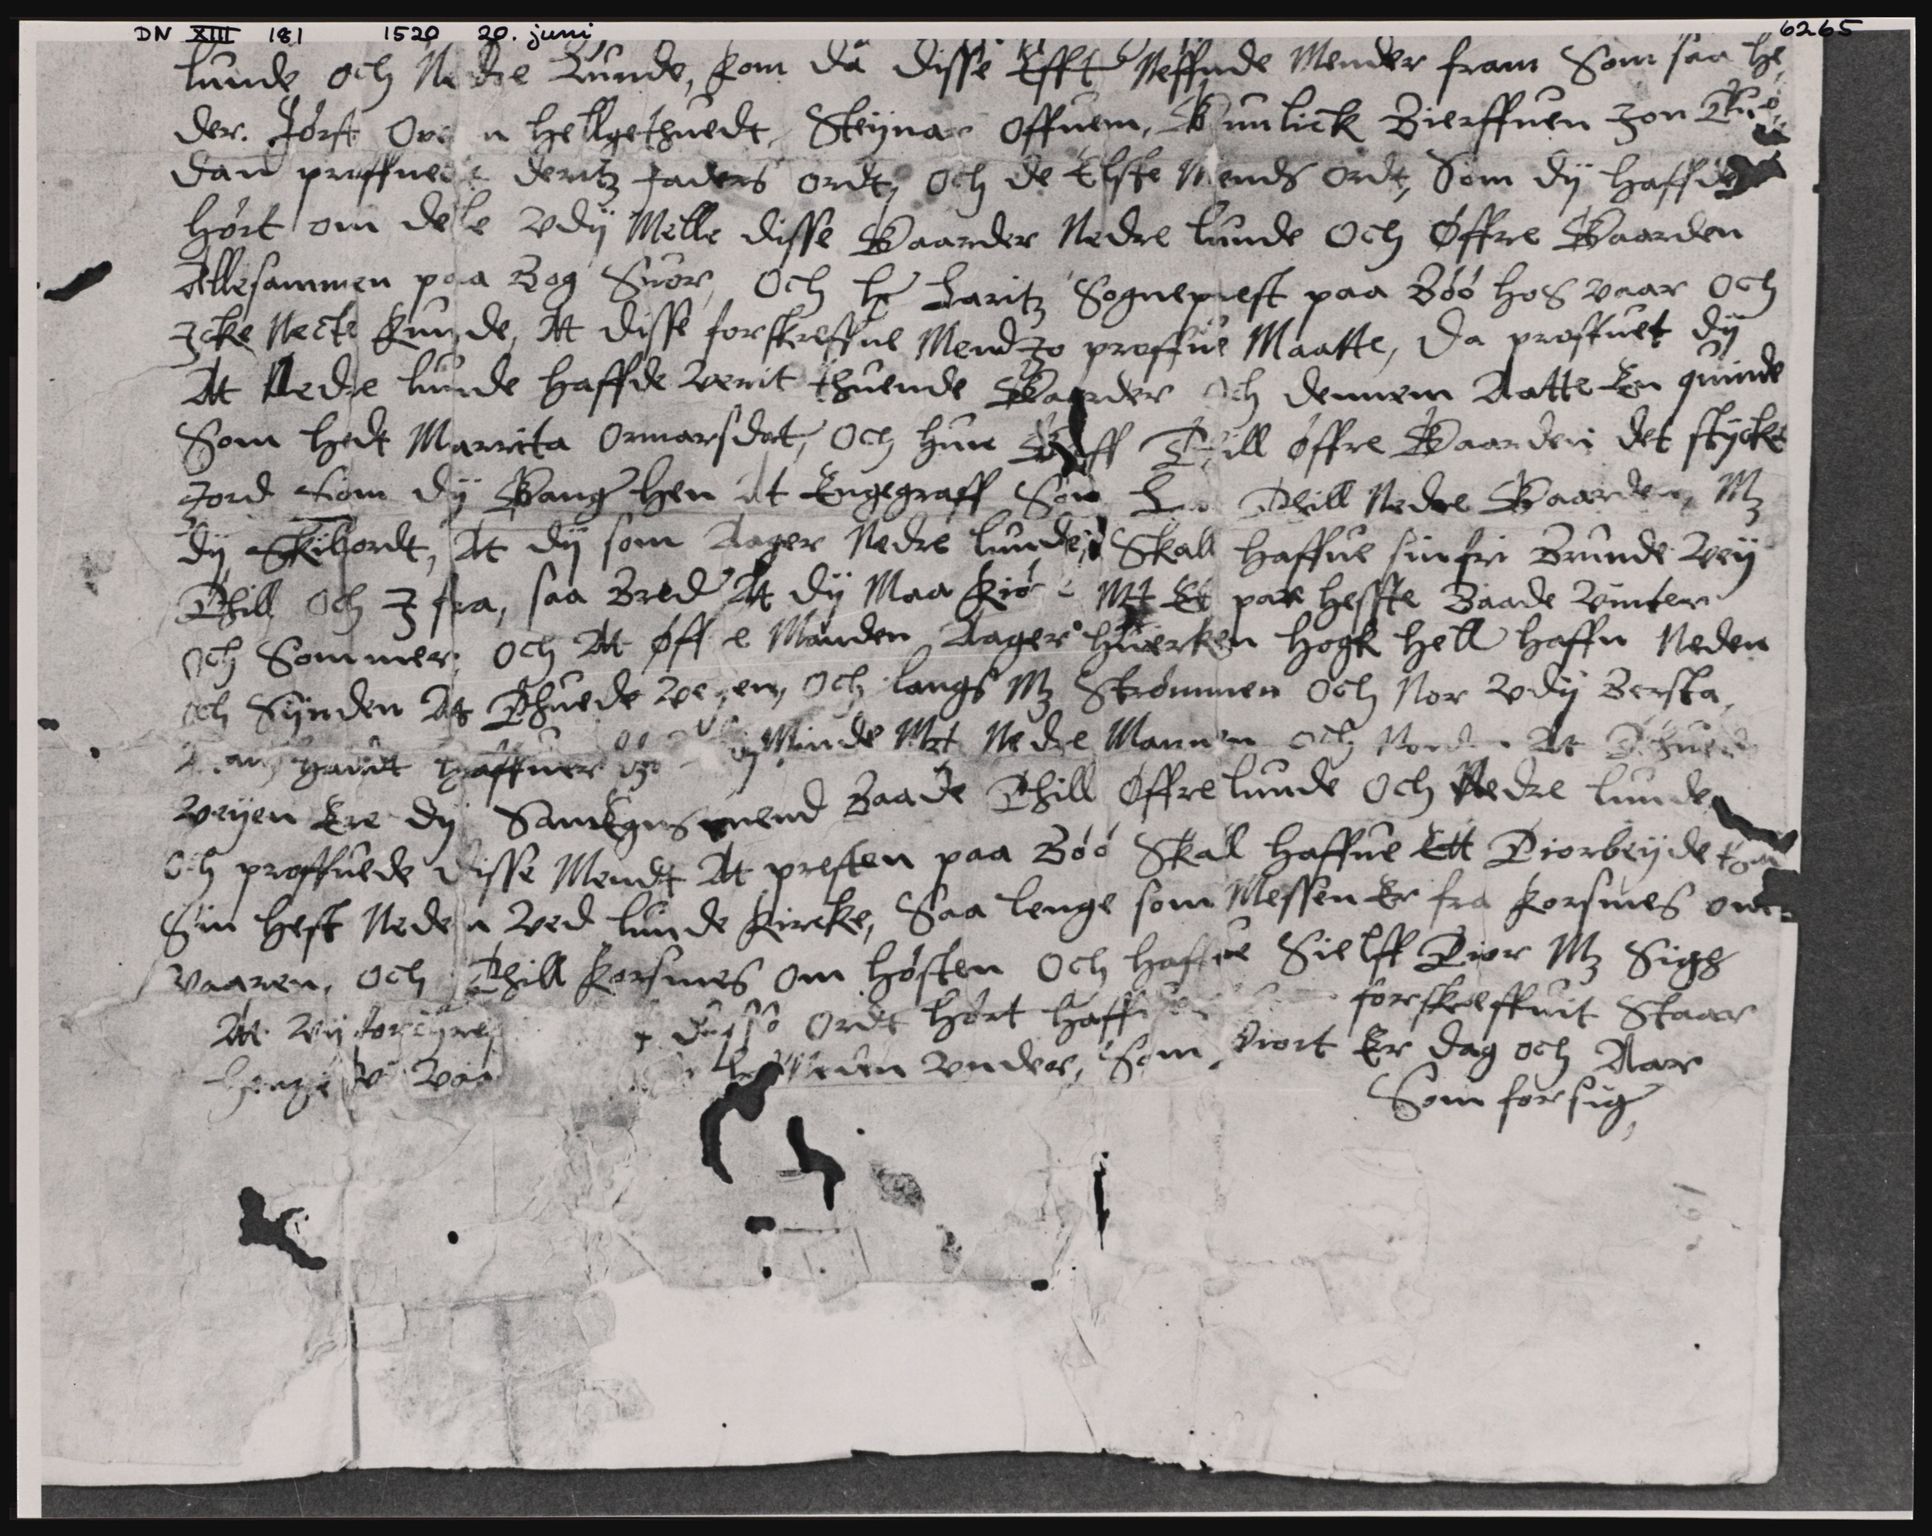 DN XIII 181 1520 20. juni 6265
lunde och Nedre Lunde, kom da disse Efft Neffnde Mender fram Som saa he
der. Først Ore n Hellgethuedt, Steynar Offuem, Gunlick Bierffuen Jon
dan proffuede deritz faders ordt, och de Elste Mends ordt, Som dij haffde
hørt om dele vdij Melle disse Gaarder Nedre lunde och Øffre Gaarden
Allesammen paa Bog Suor, och her Laritz Sogneprest paa Bøø hos vaar och
Icke Necte kunde, At disse forskreffne Mend Jo proffue Maatte, da proffuet dij
At Nedre lunde haffde verit thuende Gaarder och dennem Aatte En quinde
Som hedt Marrita Ormarsdat, och hun Gaff Thill øffre Gaarden det stycke
Jord som dij Gang hen At Engegraff Som Thill Nedre Gaarden, Mz
dij Skilordt, At dij som Aager Nedre lunde, Skall haffue sin fri Brunde Veij
Thill och J fra, saa Bred At dij Maa kiøre Mt Et par heffte Baade Vinter
och Sommer, och At øffre Manden Aager huerken hogk hell haffn Neden
och Synden At Thuede Veyen, och langs Mz Strømmen och Nor vdij Bersta,
haffuer Minde Mt Nedre Mannen och Norden At Thuede
Veijen Ere dij Samegnsmend Baade Thill Øffre lunde och Nedre lunde
och proffuede disse Mendt At presten paa Bøø Skal haffue Ett Tiorbeijde
Sin hest Neden Ved lunde kircke, Saa lenge som Messen Er fra korsmes om
vaaren, och Thill korsmes om høsten och haffue Sielff Tior Mz Sigh
At Vij disse ordt hørt haffuer forskreffuit Staar
Neden vnder, Som Giort Er dag och Aar
Som for sig,